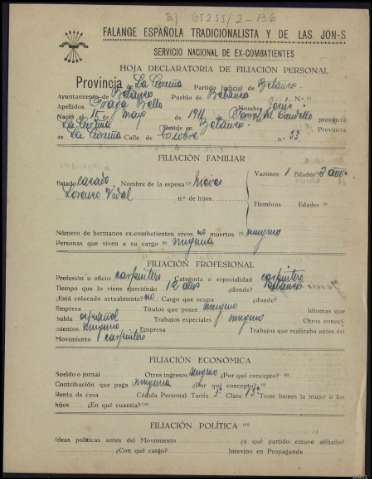 FALANGE ESPAÑOLA TRADICIONALISTA Y DE LAS JON-S
SERVICIO NACIONAL DE EX-COMBATIENTES
HOJA DECLARATORIA DE FILIACIÓN PERSONAL
Provincia de La Coruña Partido judicial de Betanzos
Ayuntamiento de Betanzos Pueblo de Betanzos N.º
Apellidos Bello Nombre Jorge
Nació el 16 de Mayo de 191 en provincia
La Coruña Reside en Betanzos provincia
de La Coruña Calle de n.º 33
FILIACIÓN FAMILIAR
Estado casado Nombre de la esposa Varones 1 Edades 3 años
Lorenzo Vidal n.º de hijos.
Hembras Edades
Número de hermanos ex-combatientes vivos no muertos ninguno
Personas que viven a su cargo ninguna
FILIACIÓN PROFESIONAL
Profesión u oficio carpintero Categoría o especialidad carpintero
Tiempo que la viene ejercitando 12 años ¿dónde? Betanzos
¿Está colocado actualmente? no Cargo que ocupa ¿desde?
Empresa Títulos que posee ninguno Idiomas que
habla español Trabajos especiales ninguno Otros conoci-
mientos ninguno Empresa Trabajos que realizaba antes del
Movimiento carpintero
FILIACIÓN ECONÓMICA
Sueldo o jornal Otros ingresos ninguno ¿Por qué concepto?
Contribución que paga ninguna ¿Por qué concepto?
Renta de casa Cédula Personal Tarifa Clase Tiene bienes la mujer o los
hijos ¿En qué cuantía?
FILIACIÓN POLÍTICA
Ideas políticas antes del Movimiento ¿a qué partido estuvo afiliado?
¿Con qué cargo? Intervino en Propaganda